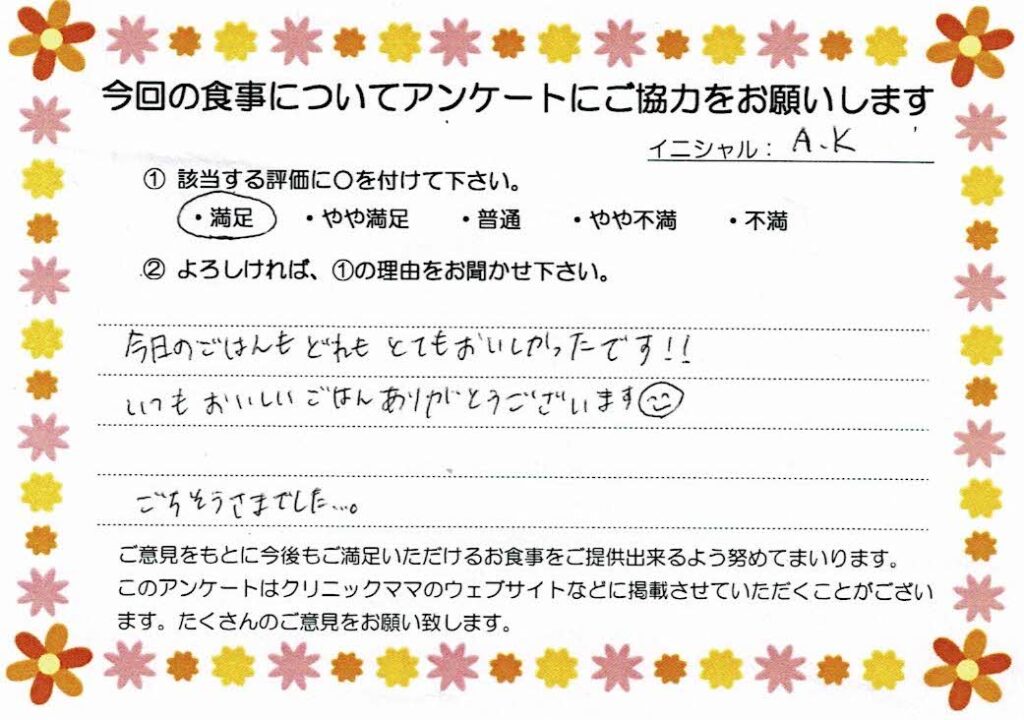 今回の食事についてアンケートにご協力をお願いします
イニシャル: A.K
① 該当する評価に〇を付けて下さい。
・満足 ・やや満足 ・普通 ・やや不満 ・不満
② よろしければ、①の理由をお聞かせ下さい。
今日のごはんもどれもとてもおいしかったです!!
いつもおいしいごはんありがとうございます
ごちそうさまでした…。
ご意見をもとに今後もご満足いただけるお食事をご提供出来るよう努めてまいります。
このアンケートはクリニックママのウェブサイトなどに掲載させていただくことがござい
ます。たくさんのご意見をお願い致します。